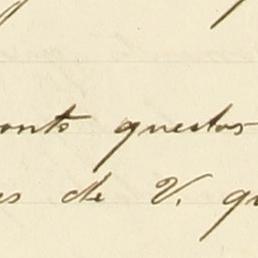 onto questos
es de V. qu